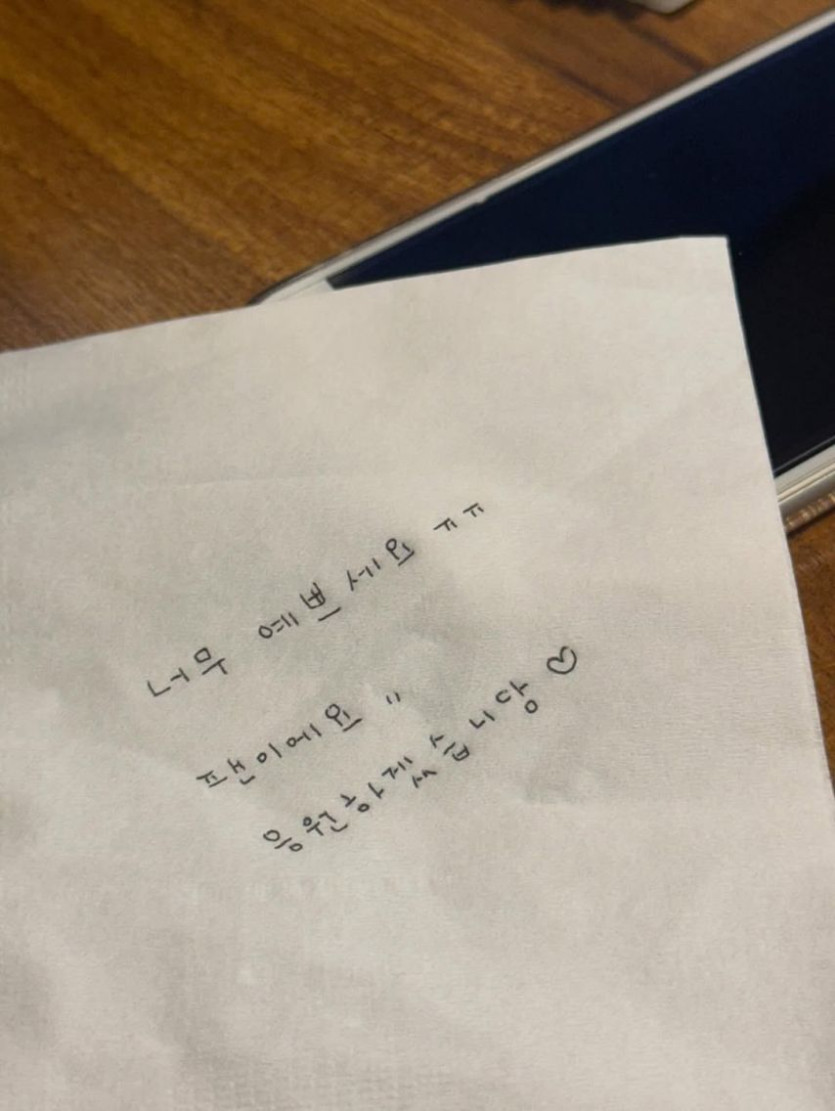 너무 예쁘세요 ㅠㅠ
팬이에요 "
응원하겠습니당 ♡